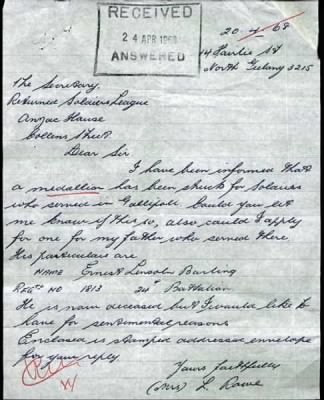 RECEIVED
24 APR 1968
ANSWERED
20-4-68
14 Fairlie St
North Geelong 3215
The Secretary
Returned Soldiers League
Anzac House
Collins Street
Dear Sir
I have been informed that
a medallion has been struck for Soldiers
who served in Gallipoli. Could you let
me know if this is so, also could I apply
for one for my father who served there
His particulars are
NAME Ernest Lincoln Barling
REGTS NO 1813 24th Battalion
He is now deceased but I would like to
have for sentimental reasons
Enclosed is stamped addressed envelope
for your reply
Yours faithfully
(Mrs) L. Rowe